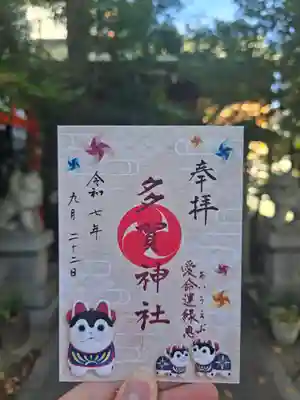 奉拝
多賀神社
愛命運縁恵
あいうえお
令和七年
九月二十二日